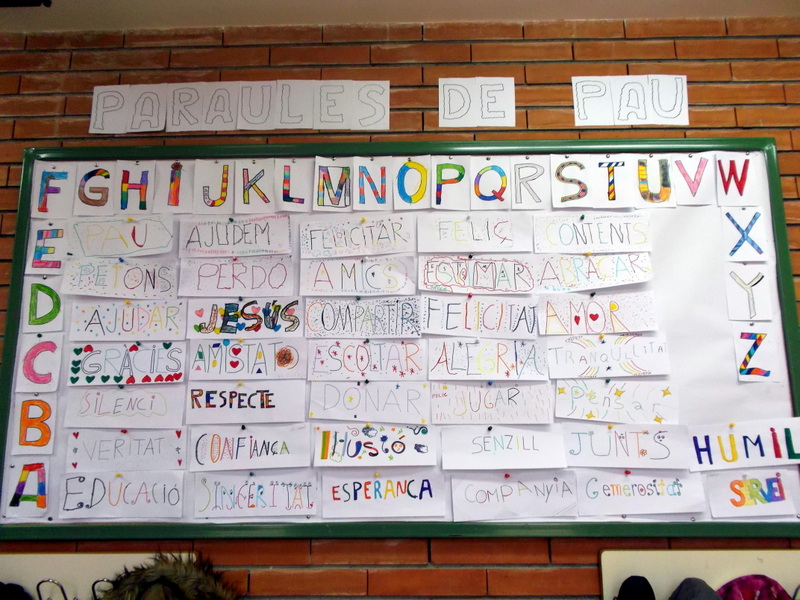 PARAULES DE PAU
F G H I J K L M N O P Q R S T U V W
E PAU AJUDEM FELICITAR FELIÇ CONTENTS X
PETONS PERDÓ AMICS ESTIMAR ABRAÇAR
D AJUDAR JESÚS COMPARTIR FELICITAT AMOR Y
C GRÀCIES AMISTAT ESCOLTAR ALEGRIA TRANQUIL·LITAT Z
SILENCI RESPECTE DONAR JUGAR Pensar
B VERITAT CONFIANÇA Il·lusió SENZILL JUNTS HUMIL
A EDUCACIÓ SINCERITAT ESPERANÇA COMPANYIA Generositat SERVEI